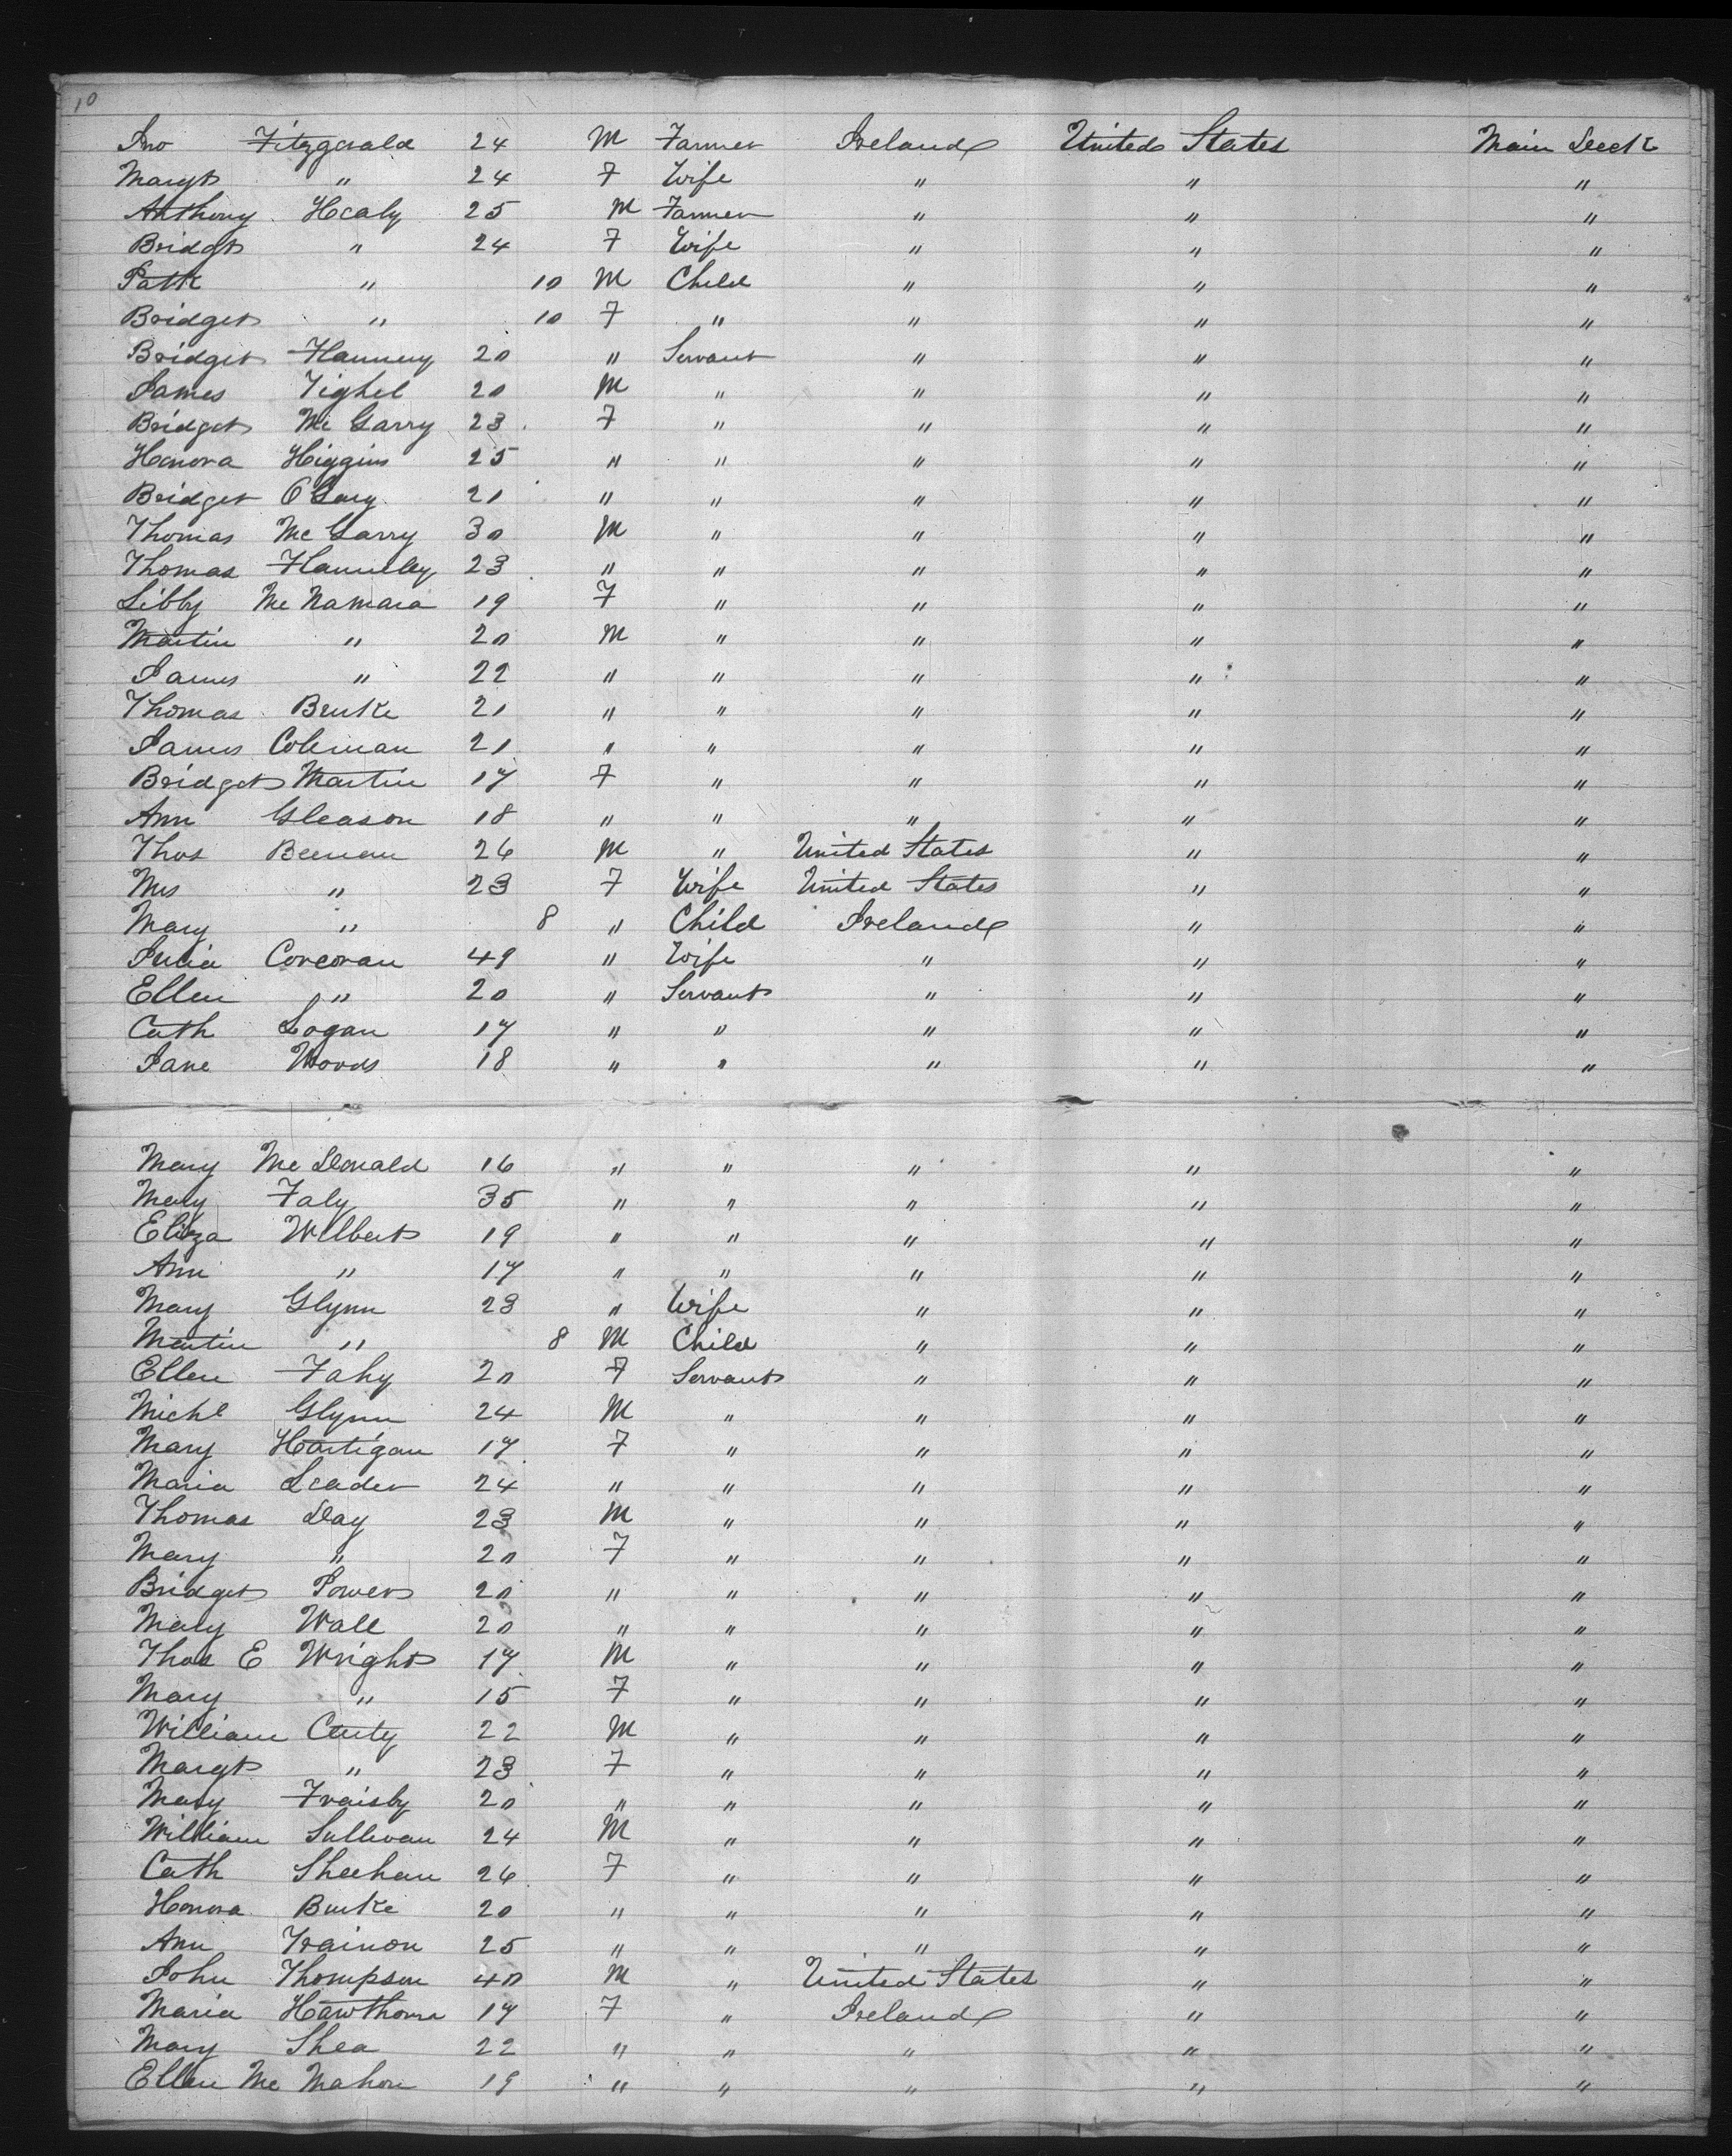 10
Jno Fitzgerald 24 M Farmer Ireland United States Main Deck
Margt " 24 F Wife " " "
Anthony Healy 25 M Farmer " " "
Bridgt " 24 F Wife " " "
Patk " 10 M Child " " "
Bridget " 10 F " " " "
Bridget Flannery 20 " Servant " " "
James Tighel 20 M " " " "
Bridget Mc Garry 23 F " " " "
Honora Higgins 25 " " " " "
Bridget O'Gary 21 " " " " "
Thomas Mc Garry 30 M " " " "
Thomas Flannelly 23 " " " " "
Libby Mc Namara 19 F " " " "
Martin " 20 M " " " "
James " 22 " " " " "
Thomas Burke 21 " " " " "
James Coleman 21 " " " " "
Bridget Martin 17 F " " " "
Ann Gleason 18 " " " " "
Thos Beenan 26 M " United States " "
Mrs " 23 F Wife United States " "
Mary " 8 " Child Ireland " "
Julia Corcoran 49 " Wife " " "
Ellen " 20 " Servant " " "
Cath Logan 17 " " " " "
Jane Woods 18 " " " " "
Mary Mc Donald 16 " " " " "
Mary Faly 35 " " " " "
Eliza Wilbert 19 " " " " "
Ann " 17 " " " " "
Mary Glynn 23 " Wife " " "
Martin " 8 M Child " " "
Ellen Fahy 20 F Servant " " "
Michl Glynn 24 M " " " "
Mary Hartigan 17 F " " " "
Maria Leader 24 " " " " "
Thomas Day 23 M " " " "
Mary " 20 F " " " "
Bridget Power 20 " " " " "
Mary Wall 20 " " " " "
Thos E Wright 17 M " " " "
Mary " 15 F " " " "
William 22 M " " " "
Margt " 23 F " " " "
Mary Fraisby 20 " " " " "
William Sullivan 24 M " " " "
Cath Sheehan 26 F " " " "
Honora Burke 20 " " " " "
Ann Trainon 25 " " " " "
John Thompson 40 M " United States " "
Maria Hawthorn 17 F " Ireland " "
Mary Shea 22 " " " " "
Ellen Mc Mahon 19 " " " " "